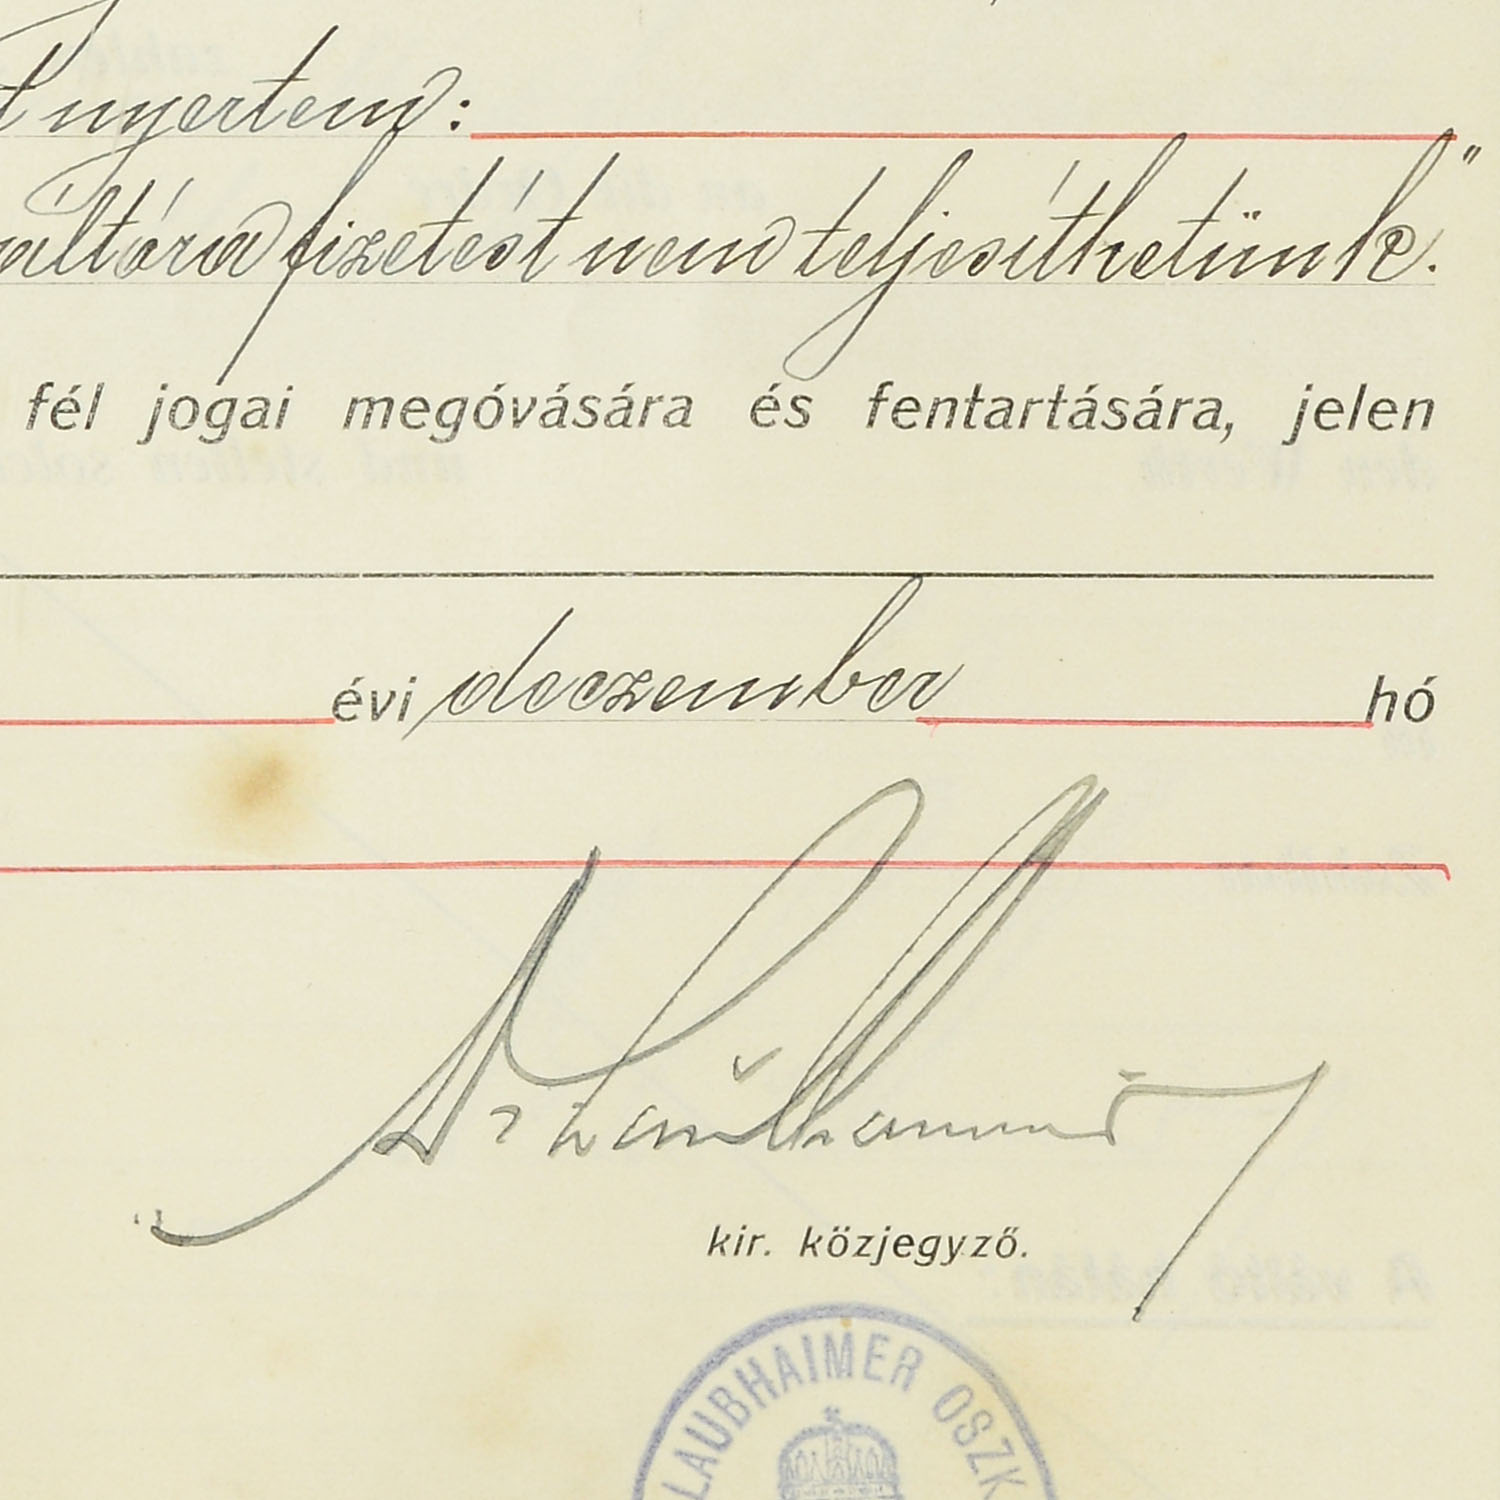 nyertem:
váltóra fizetést nem teljesíthetünk."
fél jogai megóvására és fentartására, jelen
évi deczember hó
Dr
kir. közjegyző.
LAUBHAIMER OSZK